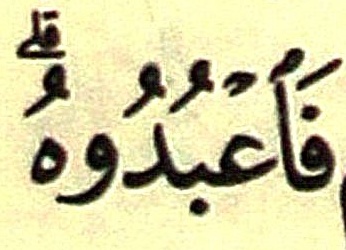 فَٱعْبُدُوهُ ۗ